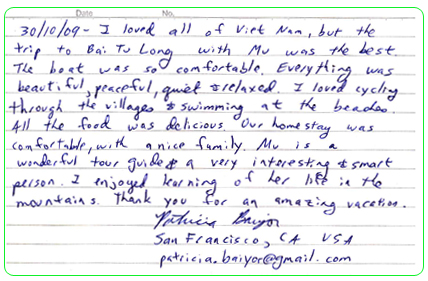 Date No.
30/10/09 - I loved all of Viet Nam, but the
trip to Bai Tu Long with Mu was the best.
The boat was so comfortable. Everything was
beautiful, peaceful, quiet & relaxed. I loved cycling
through the villages & swimming at the beaches.
All the food was delicious. Our homestay was
comfortable, with a nice family. Mu is a
wonderful tour guide & a very interesting & smart
person. I enjoyed learning of her life in the
mountains. Thank you for an amazing vacation.
Patricia Baiyor
San Francisco, CA USA
patricia.baiyor@gmail.com